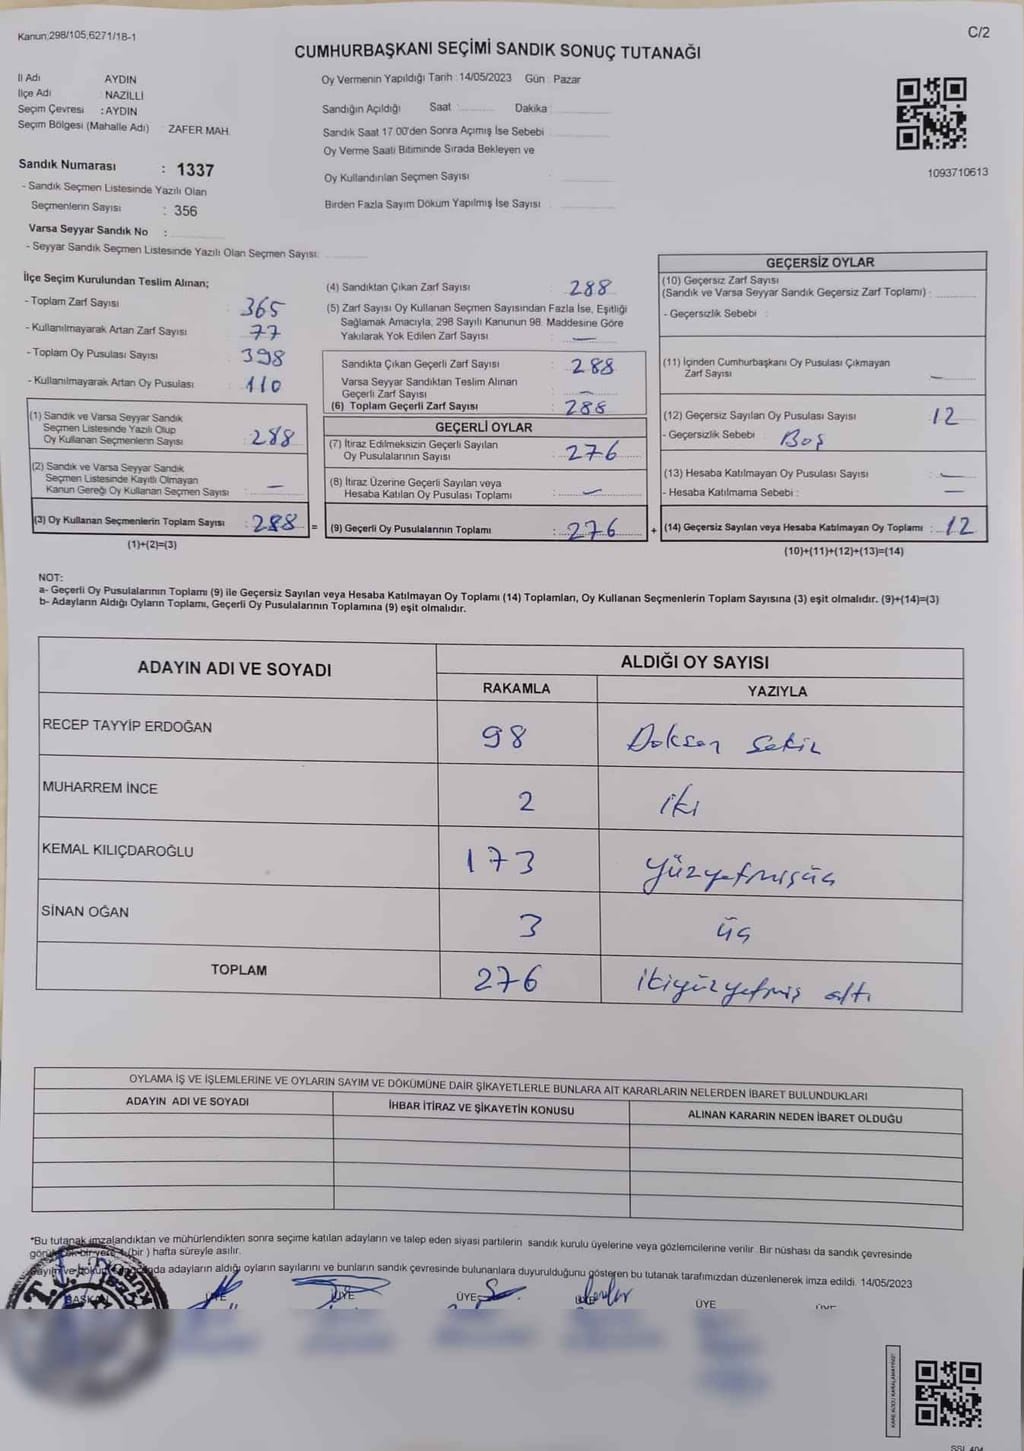 Kanun,298/105,6271/18-1
C/2
CUMHURBAŞKANI SEÇİMİ SANDIK SONUÇ TUTANAĞI
İl Adı AYDIN
İlçe Adı NAZİLLİ
Seçim Çevresi : AYDIN
Seçim Bölgesi (Mahalle Adı) ZAFER MAH.
Sandık Numarası : 1337
- Sandık Seçmen Listesinde Yazılı Olan
Seçmenlerin Sayısı : 356
Varsa Seyyar Sandık No :
- Seyyar Sandık Seçmen Listesinde Yazılı Olan Seçmen Sayısı:
Oy Vermenin Yapıldığı Tarih : 14/05/2023 Gün : Pazar
Sandığın Açıldığı Saat : Dakika :
Sandık Saat 17.00'den Sonra Açımış İse Sebebi
Oy Verme Saati Bitiminde Sırada Bekleyen ve
Oy Kullandırılan Seçmen Sayısı :
Birden Fazla Sayım Döküm Yapılmış İse Sayısı :
1093710613
İlçe Seçim Kurulundan Teslim Alınan;
- Toplam Zarf Sayısı : 365
- Kullanılmayarak Artan Zarf Sayısı : 77
- Toplam Oy Pusulası Sayısı : 398
- Kullanılmayarak Artan Oy Pusulası : 110
(1) Sandık ve Varsa Seyyar Sandık
Seçmen Listesinde Yazılı Olup
Oy Kullanan Seçmenlerin Sayısı : 288
(2) Sandık ve Varsa Seyyar Sandık
Seçmen Listesinde Kayıtlı Olmayan
Kanun Gereği Oy Kullanan Seçmen Sayısı : —
(3) Oy Kullanan Seçmenlerin Toplam Sayısı : 288 =
(1)+(2)=(3)
(4) Sandıktan Çıkan Zarf Sayısı : 288
(5) Zarf Sayısı Oy Kullanan Seçmen Sayısından Fazla İse, Eşitliği
Sağlamak Amacıyla; 298 Sayılı Kanunun 98. Maddesine Göre
Yakılarak Yok Edilen Zarf Sayısı : —
Sandıkta Çıkan Geçerli Zarf Sayısı : 288
Varsa Seyyar Sandıktan Teslim Alınan
Geçerli Zarf Sayısı : —
(6) Toplam Geçerli Zarf Sayısı : 288
GEÇERLİ OYLAR
(7) İtiraz Edilmeksizin Geçerli Sayılan
Oy Pusulalarının Sayısı : 276
(8) İtiraz Üzerine Geçerli Sayılan veya
Hesaba Katılan Oy Pusulası Toplamı : —
(9) Geçerli Oy Pusulalarının Toplamı : 276 +
GEÇERSİZ OYLAR
(10) Geçersiz Zarf Sayısı
(Sandık ve Varsa Seyyar Sandık Geçersiz Zarf Toplamı) :
- Geçersizlik Sebebi :
(11) İçinden Cumhurbaşkanı Oy Pusulası Çıkmayan
Zarf Sayısı : —
(12) Geçersiz Sayılan Oy Pusulası Sayısı : 12
- Geçersizlik Sebebi : Boş
(13) Hesaba Katılmayan Oy Pusulası Sayısı : —
- Hesaba Katılmama Sebebi : —
(14) Geçersiz Sayılan veya Hesaba Katılmayan Oy Toplamı : 12
(10)+(11)+(12)+(13)=(14)
NOT:
a- Geçerli Oy Pusulalarının Toplamı (9) ile Geçersiz Sayılan veya Hesaba Katılmayan Oy Toplamı (14) Toplamları, Oy Kullanan Seçmenlerin Toplam Sayısına (3) eşit olmalıdır. (9)+(14)=(3)
b- Adayların Aldığı Oyların Toplamı, Geçerli Oy Pusulalarının Toplamına (9) eşit olmalıdır.
ADAYIN ADI VE SOYADI ALDIĞI OY SAYISI
RAKAMLA YAZIYLA
RECEP TAYYİP ERDOĞAN 98 Doksan sekiz
MUHARREM İNCE 2 iki
KEMAL KILIÇDAROĞLU 173 yüzyetmişüç
SİNAN OĞAN 3 üç
TOPLAM 276 ikiyüzyetmiş altı
OYLAMA İŞ VE İŞLEMLERİNE VE OYLARIN SAYIM VE DÖKÜMÜNE DAİR ŞİKAYETLERLE BUNLARA AİT KARARLARIN NELERDEN İBARET BULUNDUKLARI
ADAYIN ADI VE SOYADI İHBAR İTİRAZ VE ŞİKAYETİN KONUSU ALINAN KARARIN NEDEN İBARET OLDUĞU
*Bu tutanak imzalandıktan ve mühürlendikten sonra seçime katılan adayların ve talep eden siyasi partilerin sandık kurulu üyelerine veya gözlemcilerine verilir. Bir nüshası da sandık çevresinde
bir yere 1 (bir ) hafta süreyle asılır.
adayların aldığı oyların sayılarını ve bunların sandık çevresinde bulunanlara duyurulduğunu gösteren bu tutanak tarafımızdan düzenlenerek imza edildi. 14/05/2023
BAŞKAN ÜYE ÜYE ÜYE ÜYE ÜYE ÜYE
T.C.
SSL 404